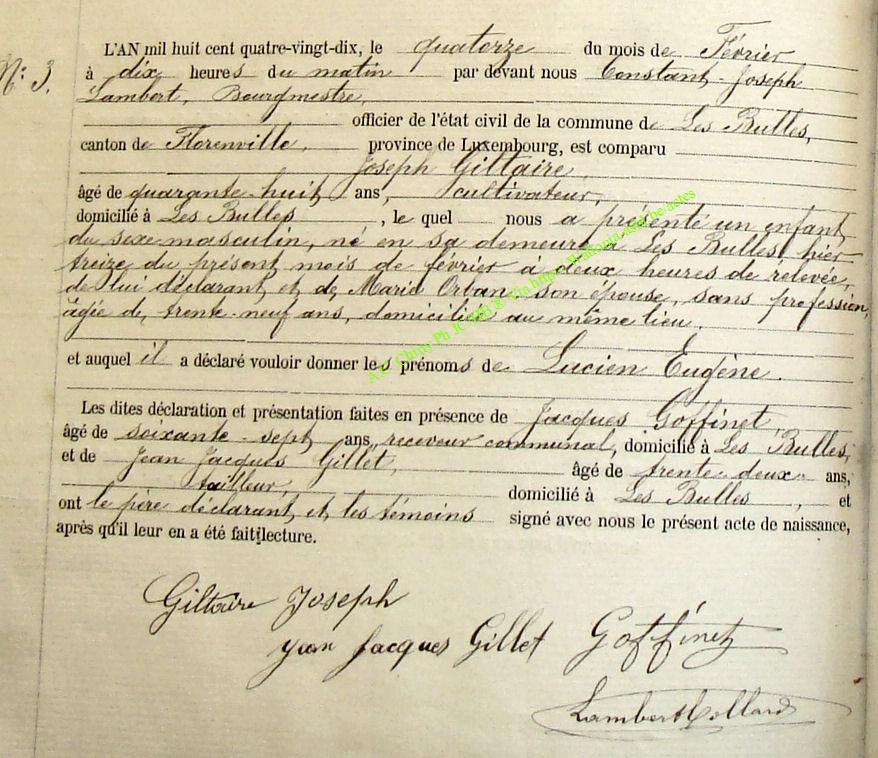 N° 3.
L'AN mil huit cent quatre-vingt-dix, le quatorze du mois de Février
à dix heures du matin par devant nous Constant-Joseph
Lambert, Bourgmestre,
officier de l'état civil de la commune de Les Bulles,
canton de Florenville, province de Luxembourg, est comparu
Joseph Giltaire,
âgé de quarante-huit ans, cultivateur,
domicilié à Les Bulles, le quel nous a présenté un enfant
du sexe masculin, né en sa demeure à Les Bulles, hier
treize du présent mois de février à deux heures de relevée,
de lui déclarant et de Marie Orban son épouse, sans profession,
âgée de trente-neuf ans, domiciliée au même lieu.
et auquel il a déclaré vouloir donner les prénoms de Lucien Eugène.
Les dites déclaration et présentation faites en présence de Jacques Goffinet,
âgé de soixante-sept ans, receveur communal, domicilié à Les Bulles,
et de Jean Jacques Gillet, âgé de trente-deux ans,
tailleur, domicilié à Les Bulles, et
ont le père déclarant et les témoins signé avec nous le présent acte de naissance,
après qu'il leur en a été fait lecture.
Giltaire Joseph
Jean Jacques Gillet Goffinet
Lambert Collard